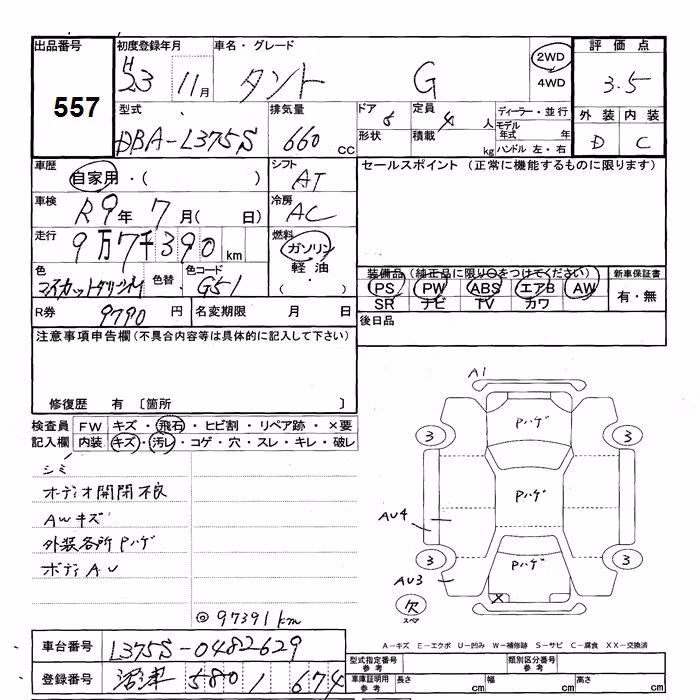 出品番号 初度登録年月 車名・グレード 評価点
557
H23 11月 タント G 2WD 4WD 3.5
型式 排気量 ドア 5 定員 4人 ディーラー・並行 外装 内装
DBA-L375S 660cc 形状 積載 kg モデル年式 年 ハンドル 左・右 D C
車歴 自家用・( ) シフト AT セールスポイント (正常に機能するものに限ります)
車検 R9年 7月( 日) 冷房 AC
走行 9万7千390km 燃料 ガソリン 軽油 ・( )
色 色替 色コード G51 装備品 (純正品に限り○をつけてください) 新車保証書
PS PW ABS エアB AW 有・無
SR ナビ TV カワ
R券 9790円 名変期限 月 日 後日品
注意事項申告欄 (不具合内容等は具体的に記入して下さい)
修復歴 有 〔箇所 〕
検査員 FW キズ・飛石・ヒビ割・リペア跡・×要
記入欄 内装 キズ・汚レ・コゲ・穴・スレ・キレ・破レ
シミ
オーディオ開閉不良
AWキズ
外装各所Pハゲ
ボディAU
◎97391km
A1
Pハゲ
3 3
Pハゲ
AU4
3 3
Pハゲ
AU3
×
欠
スペア
A-キズ E-エクボ U-凹み W-補修跡 S-サビ C-腐食 XX-交換済
車台番号 L375S-0482629 型式指定番号 参考 類別区分番号 参考
登録番号 沼津 580 674 車庫証明用 参考 長さ cm 幅 cm 高さ cm